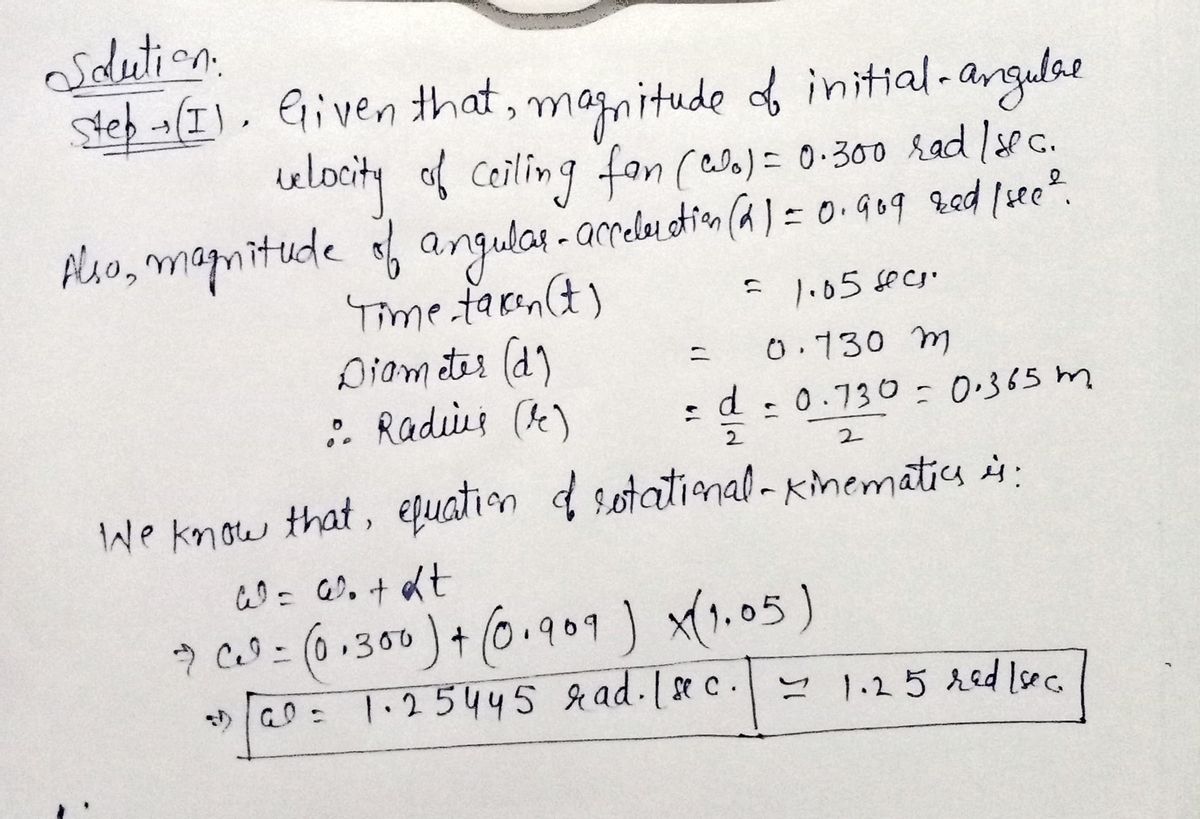 Solution:
Step → (I). Given that, magnitude of initial-angular
velocity of ceiling fan (ω₀) = 0.300 rad/sec.
Also, magnitude of angular-acceleration (α) = 0.909 rad/sec².
Time taken (t) = 1.05 secs.
Diameter (d) = 0.730 m
∴ Radius (r) = d/2 = 0.730/2 = 0.365 m
We know that, equation of rotational-kinematics is:
ω = ω₀ + αt
⇒ ω = (0.300) + (0.909) × (1.05)
⇒ ω = 1.25445 rad./sec. ≃ 1.25 rad/sec.